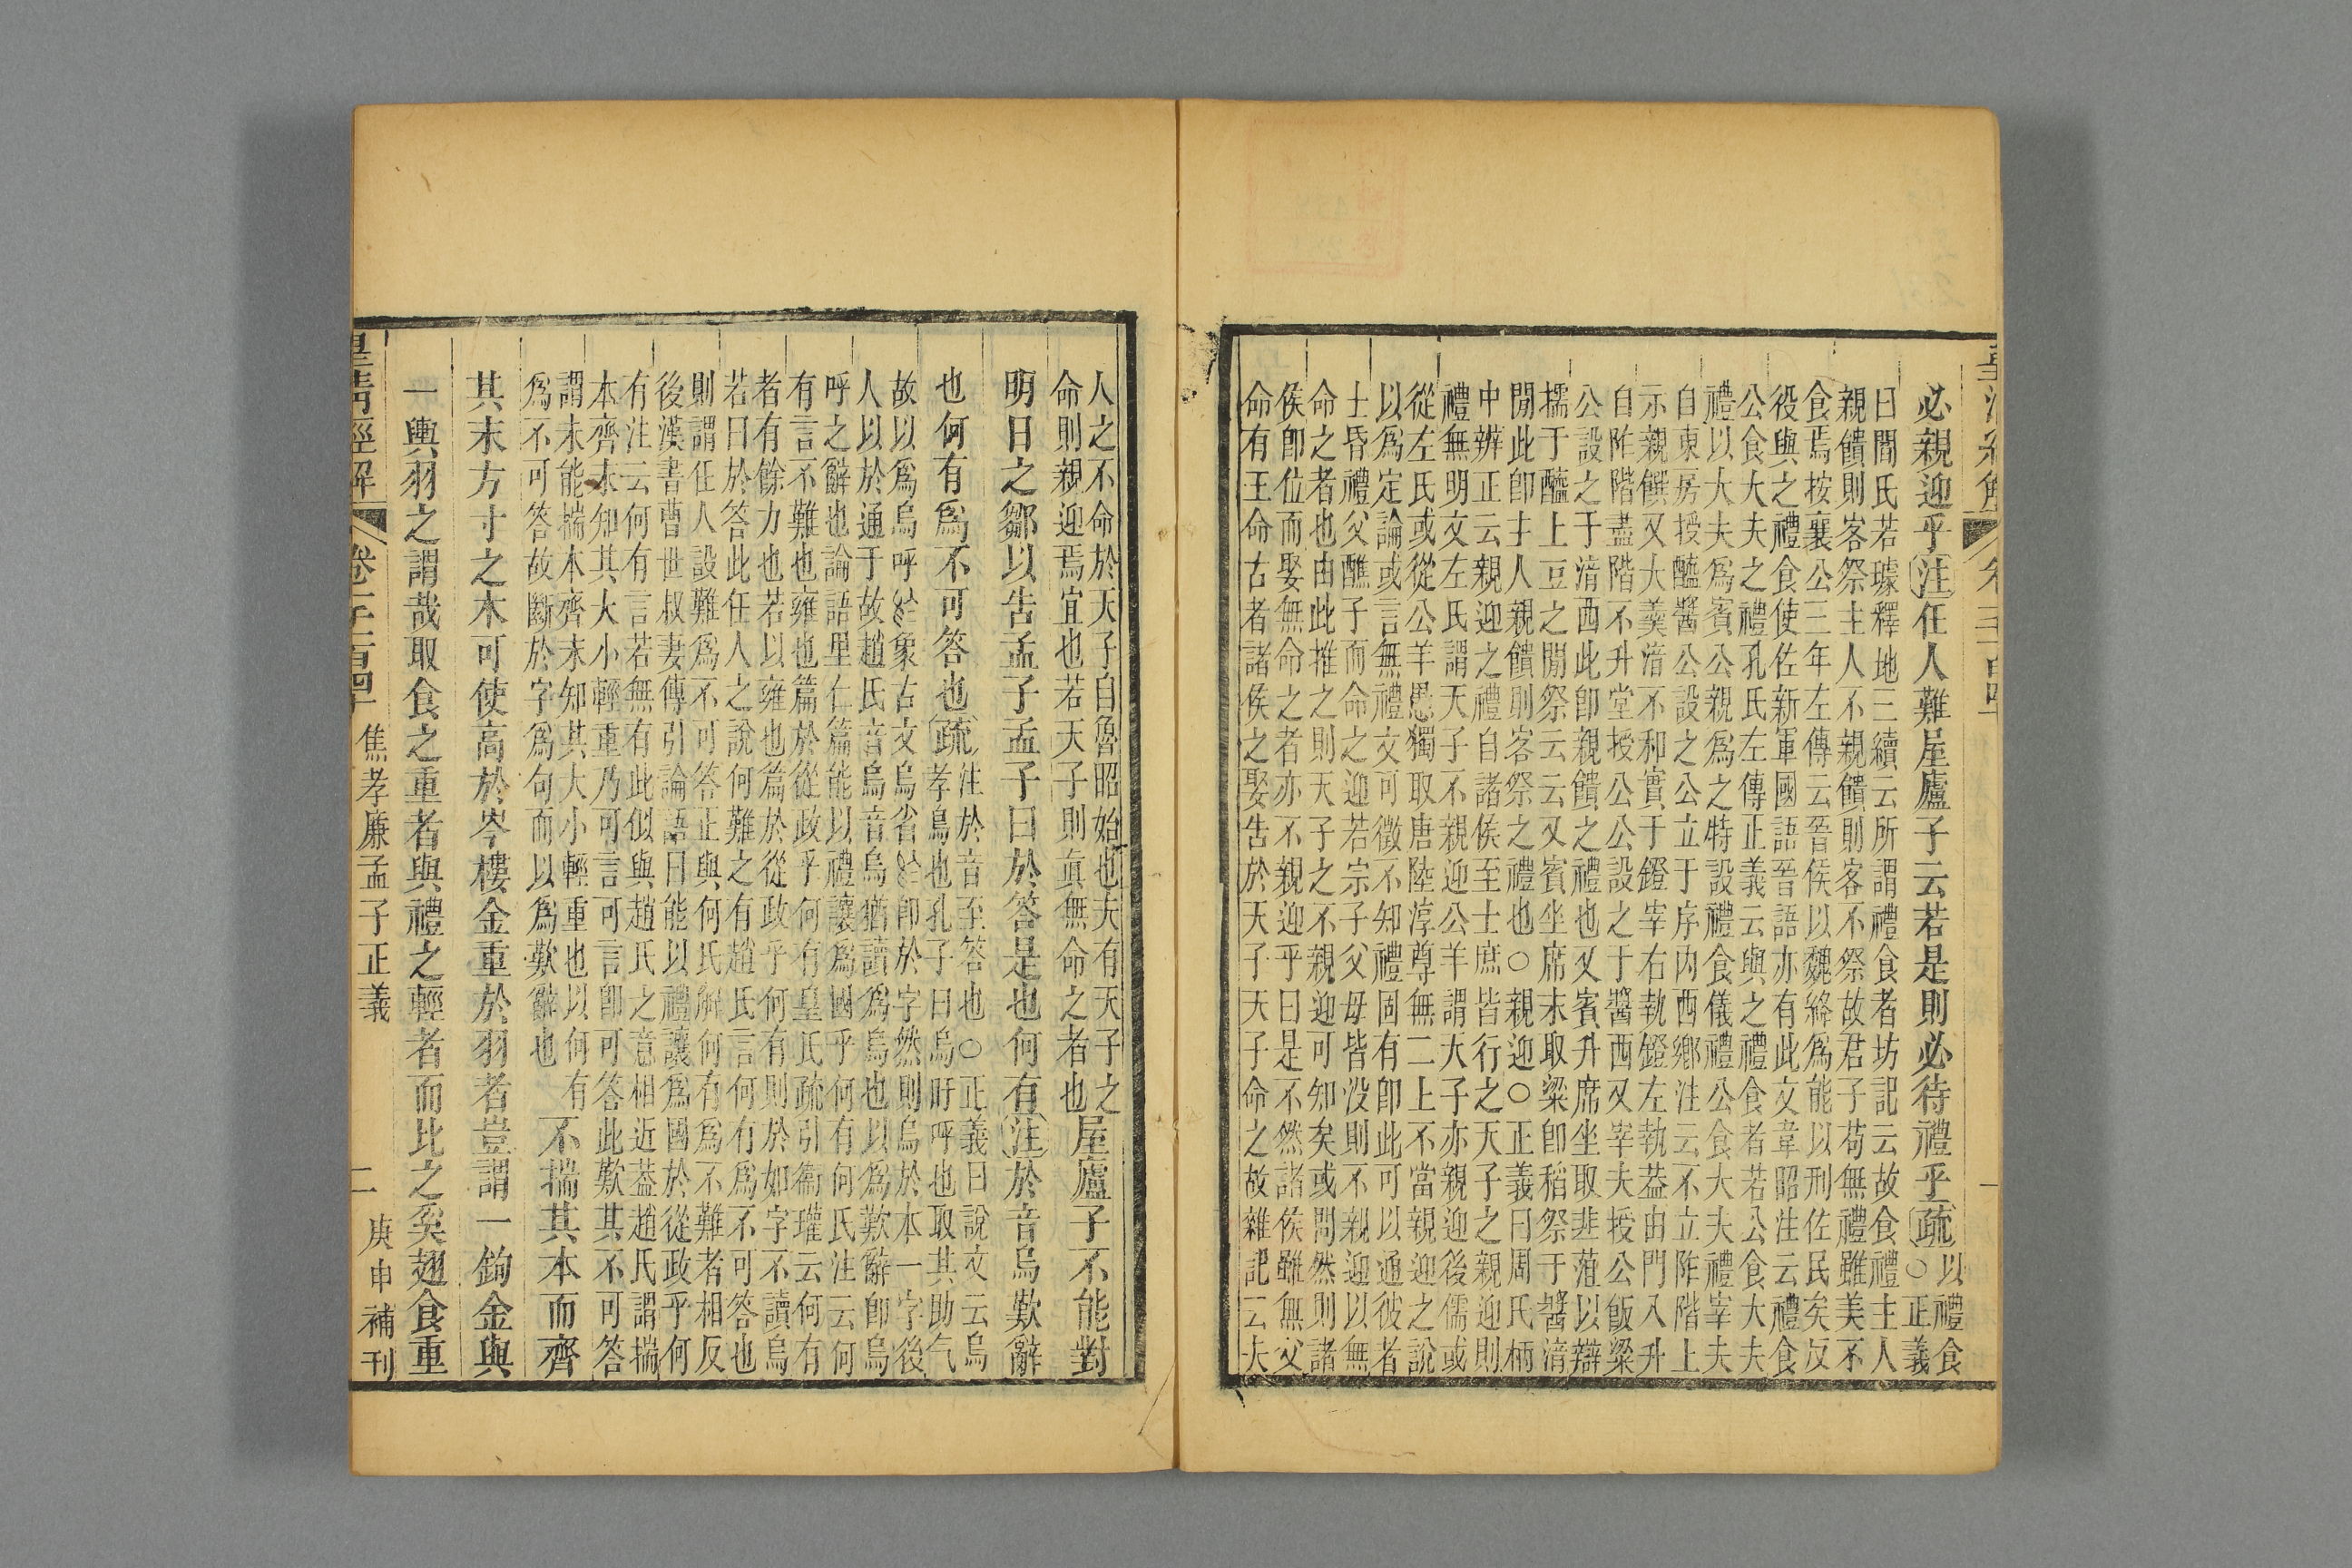 必親迎乎注任人難屋廬子云若是則必待禮乎疏以禮食
○正義
曰閻氏若璩釋地三續云所謂禮食者坊記云故食禮主人
親饋則客祭主人不親饋則客不祭故君子苟無禮雖美不
食焉按襄公三年左傳云晉侯以魏絳爲能以刑佐民矣反
役與之禮食使佐新軍國語晉語亦有此文韋昭注云禮食
公食大夫之禮孔氏左傳正義云與之禮食者若公食大夫
禮以大夫爲賓公親爲之特設禮食儀禮公食大夫禮宰夫
自東房授醯醬公設之公立于序內西鄉注云不立阼階上
示親饌又大羹湆不和實于鐙宰右執鐙左執葢由門入升
自阼階盡階不升堂授公公設之于醬西又宰夫授公飯粱
公設之于湆西此卽親饋之禮也又賓升席坐取韭菹以辯
擩于醢上豆之閒祭云云又賓坐席末取粱卽稻祭于醬湆
閒此卽主人親饋則客祭之禮也○親迎○正義曰周氏柄
中辨正云親迎之禮自諸侯至士庶皆行之天子之親迎則
禮無明文左氏謂天子不親迎公羊謂大子亦親迎後儒或
從左氏或從公羊愚獨取唐陸淳尊無二上不當親迎之說
以爲定論或言無禮文可徵不知禮固有卽此可以通彼者
士昏禮父醮子而命之迎若宗子父母皆没則不親迎以無
命之者也由此推之則天子之不親迎可知矣或問然則諸
侯卽位而娶無命之者亦不親迎乎曰是不然諸侯雖無父
命有王命古者諸侯之娶告於天子天子命之故雜記云夫
人之不命於天子自魯昭始也夫有天子之
命則親迎焉宜也若天子則眞無命之者也屋廬子不能對
明日之鄒以告孟子孟子曰於答是也何有注於音烏歎辭
也何有爲不可答也疏注於音至答也○正義曰說文云烏
孝鳥也孔子曰烏盱呼也取其助气
故以爲烏呼象古文烏省卽於字然則烏於本一字後
人以於通于故趙氏音烏音烏猶讀爲烏也以爲歎辭卽烏
呼之辭也論語里仁篇能以禮讓爲國乎何有何氏注云何
有言不難也雍也篇於從政乎何有皇氏疏引衞瓘云何有
者有餘力也若以雍也篇於從政乎何有則於如字不讀烏
若曰於答此任人之說何難之有趙氏言何有爲不可答也
則謂任人設難爲不可答正與何氏解何有爲不難者相反
後漢書曹世叔妻傳引論語曰能以禮讓爲國於從政乎何
有注云何有言若無有此似與趙氏之意相近葢趙氏謂揣
本齊末知其大小輕重乃可言可言卽可答此歎其不可答
謂未能揣本齊末知其大小輕重也以何有
爲不可答故斷於字爲句而以爲歎辭也不揣其本而齊
其末方寸之木可使高於岑樓金重於羽者豈謂一鉤金與
一輿羽之謂哉取食之重者與禮之輕者而比之奚翅食重
皇清經解卷千一百四十 焦孝廉孟子正義 二 庚申補刊